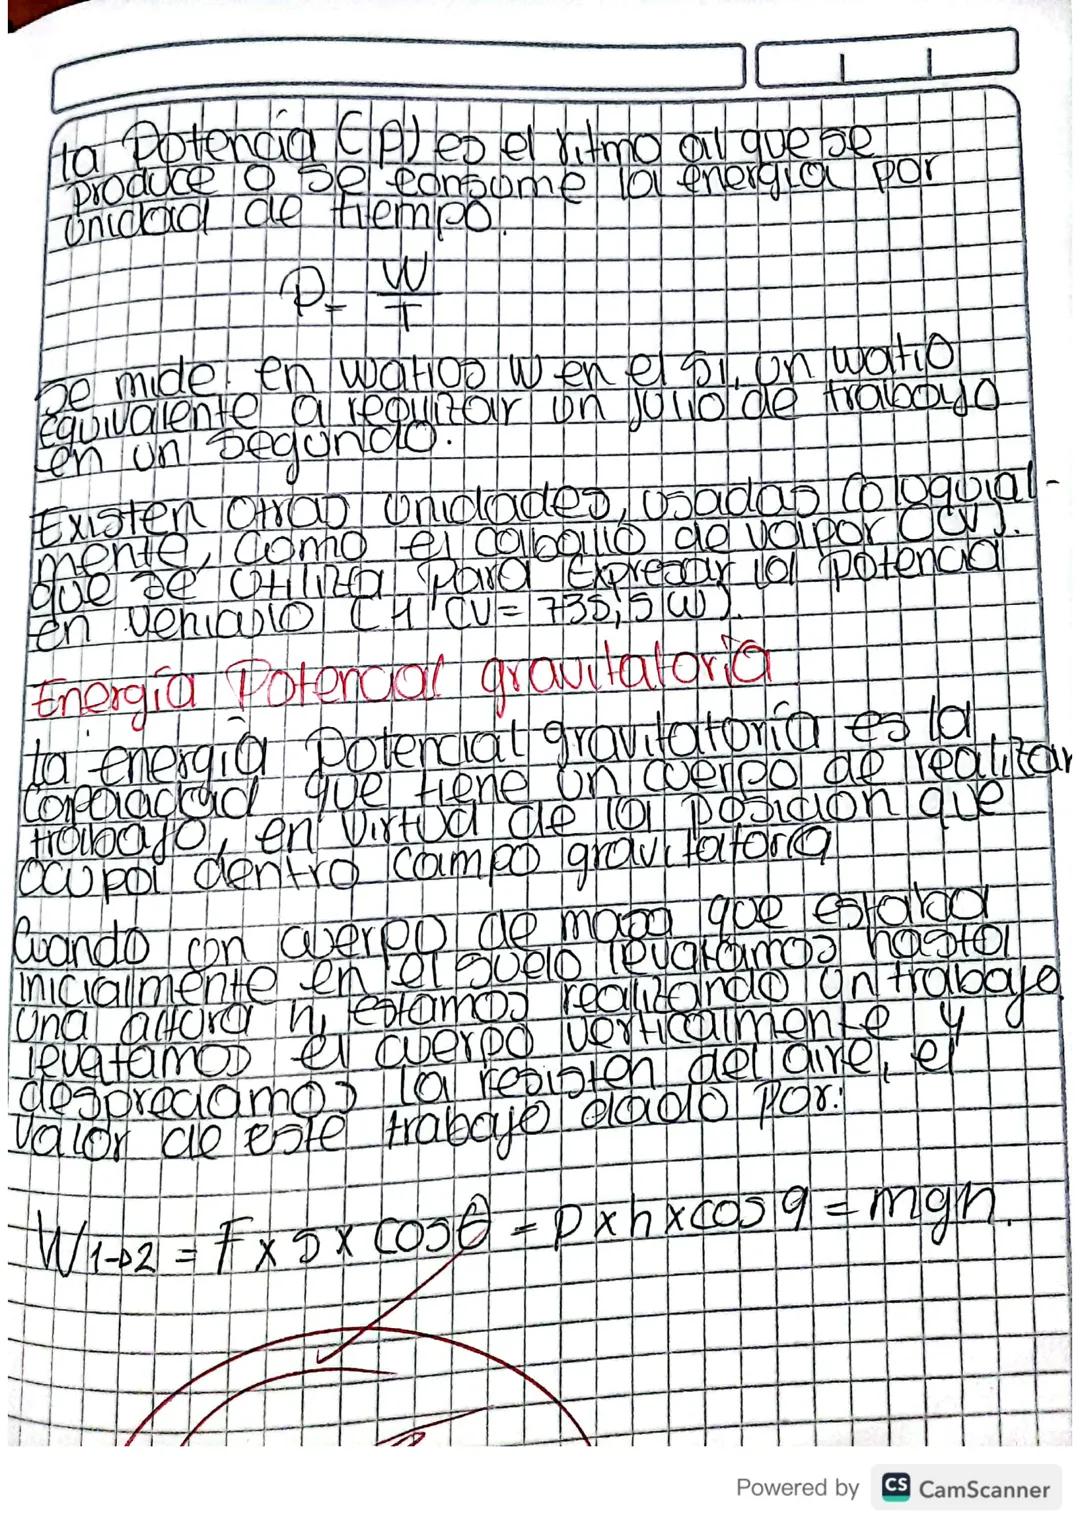 La Potencia (P) es el ritmo al que se
produce o se consume la energia por
unidad de tiempo.
P = W
T
Se mide en watios W en el SI, un watio
equivalente a requlizar un julio de trabajo
en un segundo.
Existen otras unidades, usadas coloquial-
mente, como el caballo de valpor (CV).
que se utiliza para expresar la potencia
en vehiculo (1 CV = 735,5 W).
Energía Potencial gravitatoria
La energia potencial gravitatoria es la
capacidad que tiene un cuerpo de realizar
trabajo, en virtud de la posicion que
ocupa dentro campo gravitatoria
Cuando con cuerpo de masa que estaba
inicialmente en el suelo levatamos hasta
una altura h, estamos realizando un trabajo
levatamos el cuerpo verticalmente y
despreciamos la resisten del aire, el
valor de este trabajo dado por:
W 1→2 = F x s x cos θ = p x h x cos q = mgh.
Powered by CS CamScanner